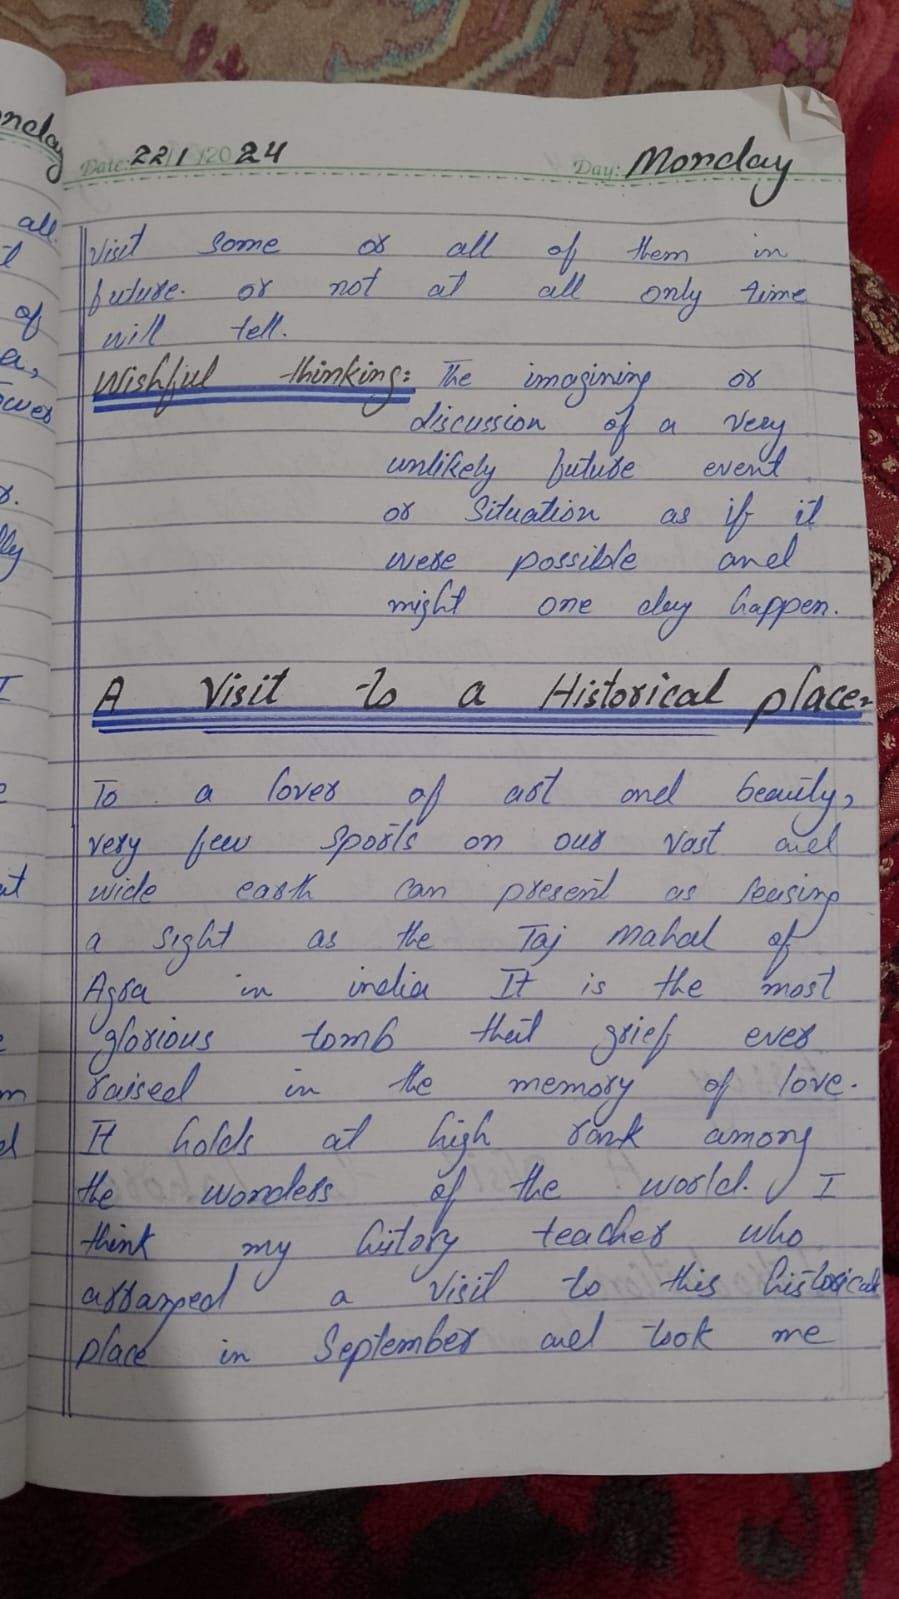 Date: 22/1/2024 Day: Monday
visit some or all of them in
future. or not at all only time
will tell.
Wishful thinking: The imagining or
discussion of a very
unlikely future event
or Situation as if it
were possible and
might one day happen.
A Visit to a Historical place:
To a lover of art and beauty,
very few sports on our vast and
wide earth can present as leasing
a sight as the Taj Mahal of
Agra in india It is the most
glorious tomb that grief ever
raised in the memory of love.
It holds at high rank among
the wonders of the world. I
think my history teacher who
arranged a visit to this historical
place in September and took me
onday
all
of
I